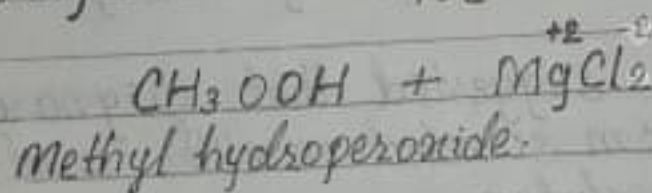 +2
CH3OOH + MgCl2
Methyl hydroperoxide.